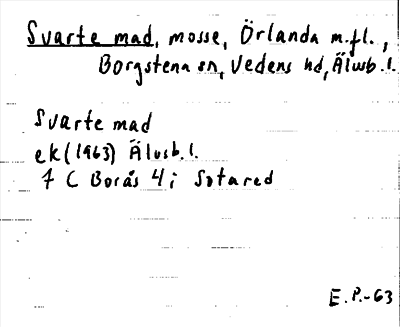 Svarte mad, mosse, Örlanda m.fl.,
Borgstena sn, Vedens hd, Älvsb.l.
Svarte mad
ek (1963) Älvsb.l.
7 C Borås 4 i Sotared
E.P.-63